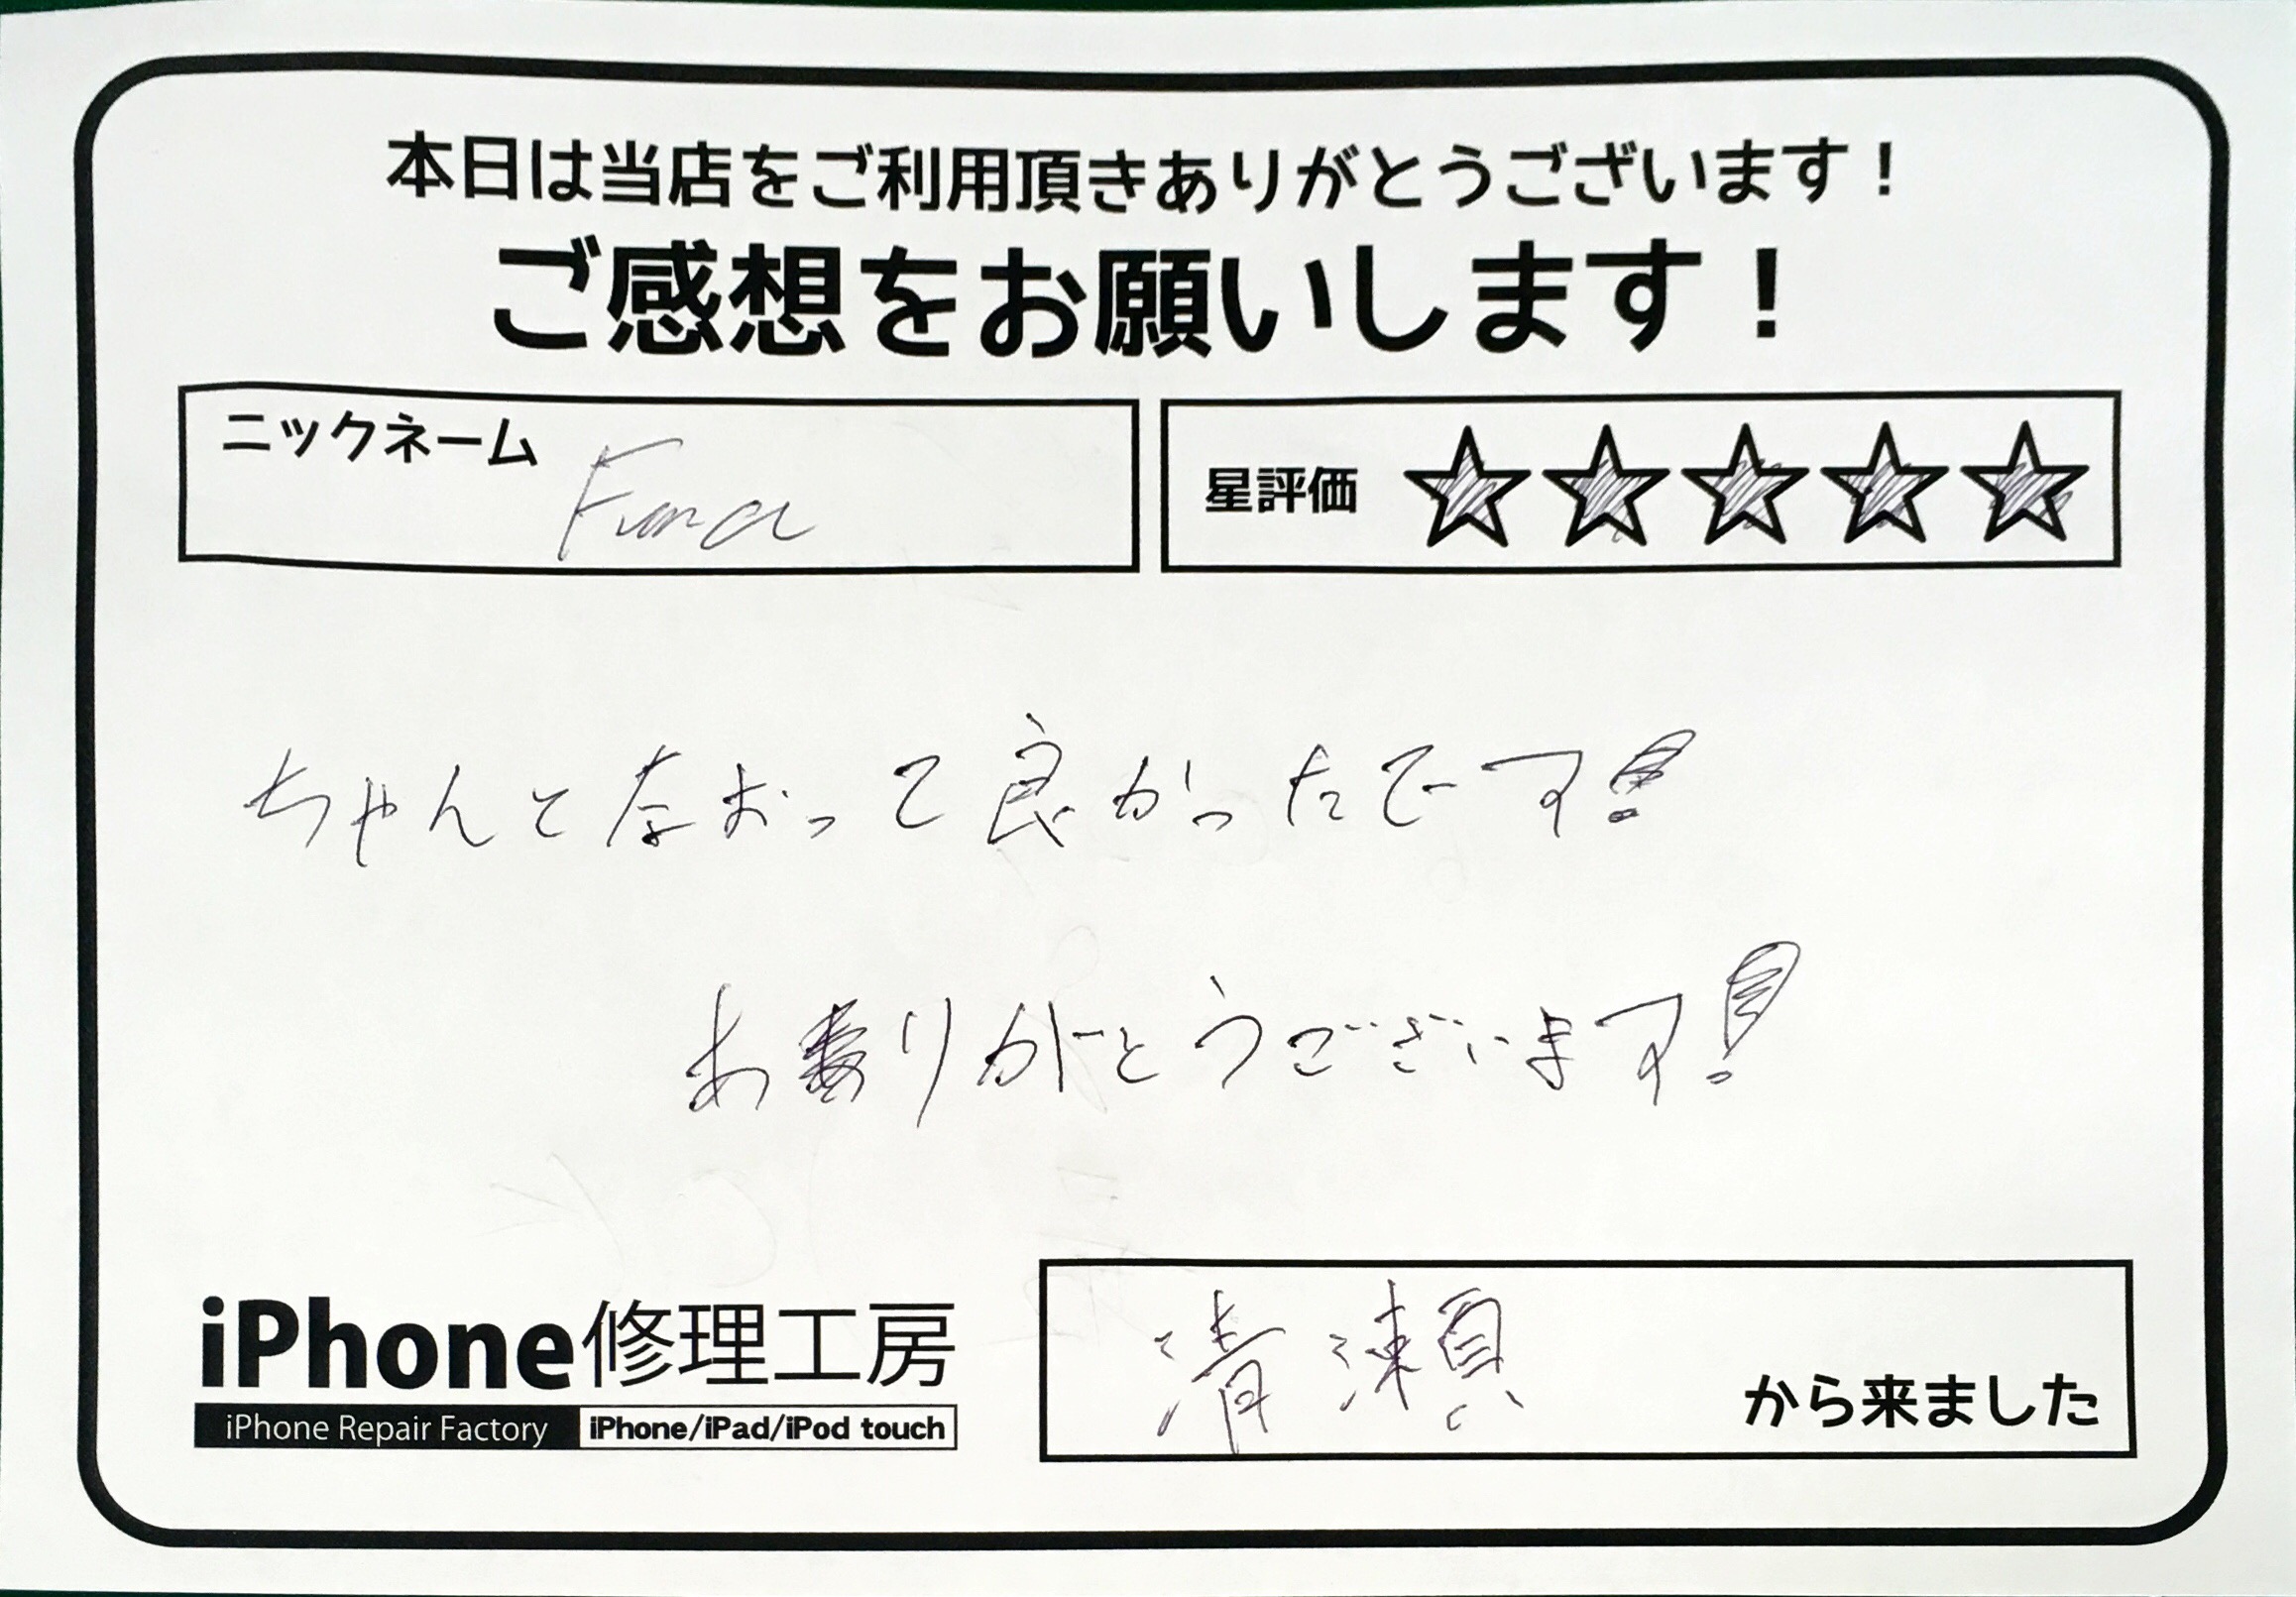 本日は当店をご利用頂きありがとうございます！
ご感想をお願いします！
ニックネーム
星評価 ☆☆☆☆☆
ちゃんとなおって良かったです！
ありがとうございます！
iPhone修理工房
iPhone Repair Factory iPhone/iPad/iPod touch
清瀬 から来ました